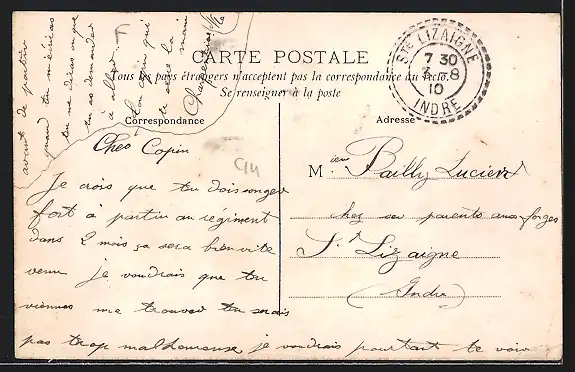 CARTE POSTALE
Tous les pays étrangers n'acceptent pas la correspondance au recto.
Se renseigner à la poste
Correspondance
Adresse
STE LIZAIGNE
7 30
8
10
INDRE
Cher Copin
C14
Je crois que tu dois songer
fort à partir au regiment
dans 2 mois ça sera bien vite
venu je voudrais que tu
viennes me trouver tu serais
pas trop malheureuse je voudrais pourtant te voir
avant de partir
quand tu m'écriras
tu me diras on que
tu as demander
a aller
Ton copin qui
te serre la main
M. Bailly Lucien
chez ses parents aux forges
St Lizaigne
(Indre)